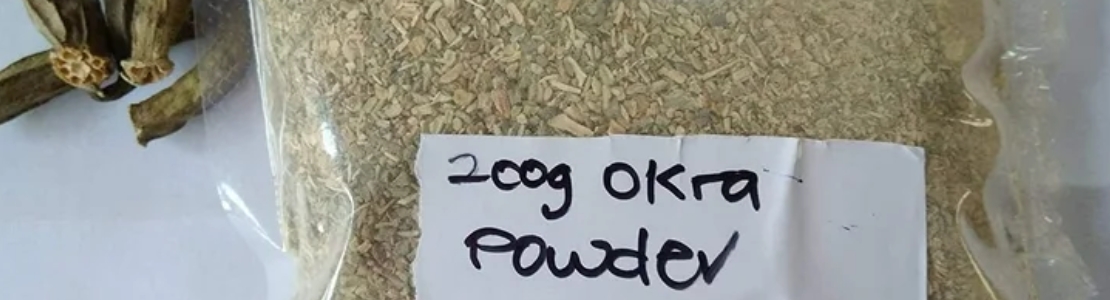 200g Okra
Powder